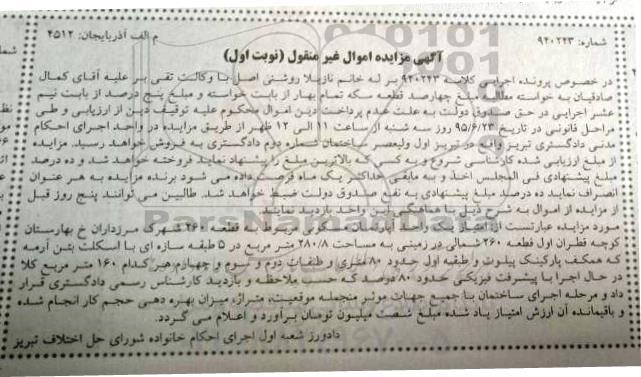 شماره: ۹۴۰۲۲۳
م الف آذربایجان: ۴۵۱۲
آگهی مزایده اموال غیر منقول (نوبت اول)
در خصوص پرونده اجرایی کلاسه ۹۴۰۲۲۳ بر له خانم نازیلا روشنی اصل با وکالت تقی بر علیه آقای کمال
صادقیان به خواسته مطالبه مبلغ چهارصد قطعه سکه تمام بهار از بابت خواسته و مبلغ پنج درصد از بابت نیم
عشر اجرایی در حق صندوق دولت به علت عدم پرداخت دین اموال محکوم علیه توقیف دین از ارزیابی و طی
مراحل قانونی در تاریخ ۹۵/۶/۲۳ روز سه شنبه از ساعت ۱۱ الی ۱۲ ظهر از طریق مزایده در واحد اجرای احکام
مدنی دادگستری تبریز واقع در تبریز اول ولیعصر ساختمان شماره دوم دادگستری به فروش خواهد رسید. مزایده
از مبلغ ارزیابی شده کارشناسی شروع و به کسی که بالاترین مبلغ را پیشنهاد نماید فروخته خواهد شد و ده درصد
مبلغ پیشنهادی فی المجلس اخذ و به مابقی حداکثر یک ماه فرصت داده می شود برنده مزایده به هر عنوان
انصراف نماید ده درصد مبلغ پیشنهادی به نفع صندوق دولت ضبط خواهد شد. طالبین می توانند پنج روز قبل
از مزایده از اموال به شرح ذیل با هماهنگی این واحد بازدید نمایند
مورد مزایده عبارتست از: امتیاز یک واحد آپارتمان مسکونی مربوط به قطعه ۲۶۰ شهرک مرزداران خ بهارستان
کوچه قطران اول قطعه ۲۶۰ شمالی در زمینی به مساحت ۲۸۰/۸ متر مربع در ۵ طبقه سازه ای با اسکلت بتن آرمه
که همکف پارکینگ پیلوت و طبقه اول حدود ۸۰ متری و طبقات دوم و سوم و چهارم هر کدام ۱۶۰ متر مربع کلا
در حال اجرا با پیشرفت فیزیکی حدود ۸۰ درصد که حسب ملاحظه و بازدید کارشناس رسمی دادگستری قرار
داد و مرحله اجرای ساختمان با جمیع جهات موثر منجمله موقعیت، متراژ، میزان بهره دهی حجم کار انجام شده
و باقیمانده آن ارزش امتیاز یاد شده مبلغ شصت میلیون تومان برآورد و اعلام می گردد.
دادورز شعبه اول اجرای احکام خانواده شورای حل اختلاف تبریز